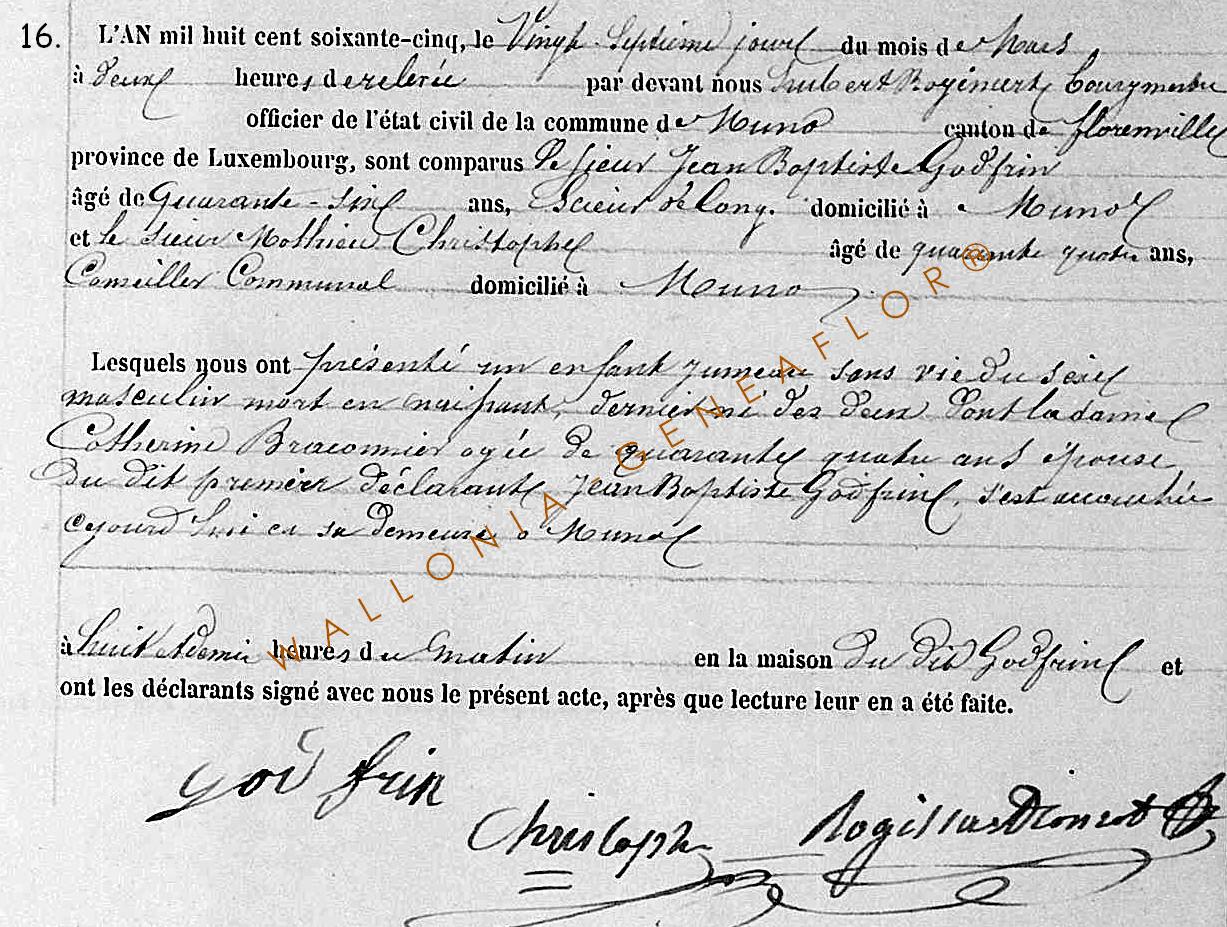 16. L'AN mil huit cent soixante-cinq, le Vingt Septième jour du mois de Mars
à deux heures de relevée par devant nous hubert Bourgmestre
officier de l'état civil de la commune de Muno canton de florenville
province de Luxembourg, sont comparus Le sieur Jean Baptiste Godfrin
âgé de Quarante-six ans, Scieur de long. domicilié à Muno
et le sieur Mathieu Christophe âgé de quarante quatre ans,
Conseiller Communal domicilié à Muno
Lesquels nous ont présenté un enfant jumeau sans vie du sexe
masculin mort en naissant, dernier né des deux dont la dame
Catherine Braconnier agée de quarante quatre ans épouse
du dit premier déclarant Jean Baptiste Godfrin, s'est accouchée
en sa demeure à Muno
à huit et demie heures du matin en la maison du dit Godfrin et
ont les déclarants signé avec nous le présent acte, après que lecture leur en a été faite.
godfrin
Christophe
WALLONIA GENEAFLOR®